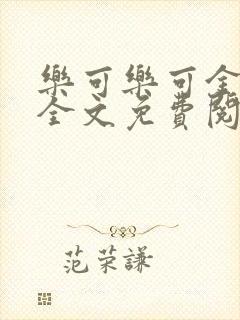 樂可樂可全
全文免費閱
范荣謙